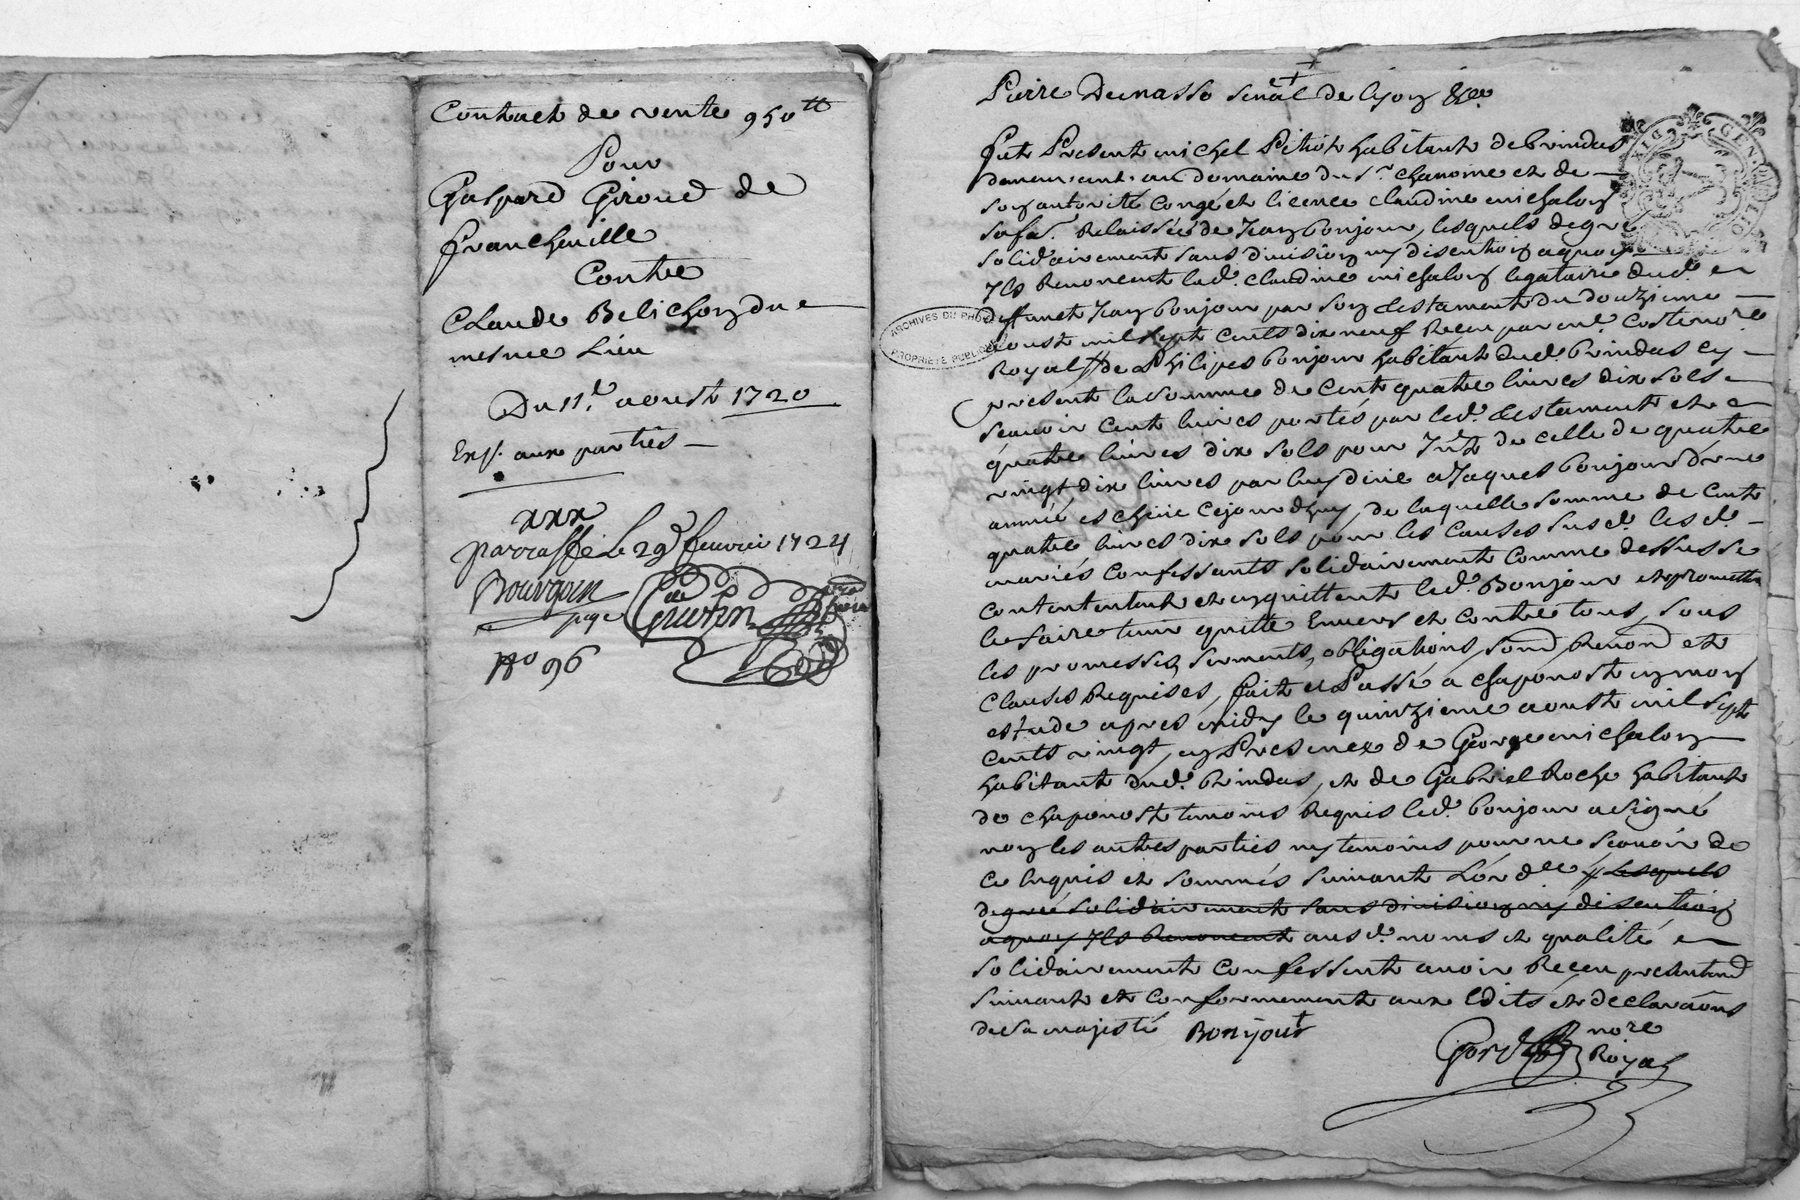 Contract de vente 950tt
Pour
Gaspard Giroud de
francheville
Contre
Claude Belichon du
mesme Lieu
Du 11e. aoust 1720
Exp. aux parties
xxx
parraffé le 29e feurier 1724
Bourgoin
No 96
Pierre Denasso Senal de lyon
fut Present michel Pitiot habitant de brindas
demeurant au domaine du Sr. chanoine et de
son autorité congé et licence claudine michalon
sa fe. Relaissée de Jean bonjour, lesquels de gré
solidairement sans division ny disention a quoy
Ils Renoncent lad. claudine michalon legataire dud.
deffunct Jean bonjour par son testament du douzieme
aoust mil sept cents dix neuf Receu par md. Coste nore
Royal // de Philipes bonjour habitant dud. brindas cy
present la somme de cent quatre liures dix sols
scauoir cent liures portés par led. testament et
quatre liures dix sols pour Int de celle de quatre
vingt dix liures par luy düe a Jaques bonjour d'une
année escheüe cejourdhuy, de laquelle somme de cent
quatre liures dix sols pour les causes susd. les d.
mariés confessants solidairement comme dessus se
contentent et enquittent led. Bonjour et promettent
le faire tenir quitte Enuers et contre tous, sous
les promesses, serments, obligations, soud Renond et
clauses Requises, fait et Passé a chaponost en mon
estude apres midy le quinzieme aoust mil sept
cents vingt, en Presence de George michalon
habitant dud. brindas, et de Gabriel Roche habitant
de chaponost temoins Requis led. bonjour a signé
non les autres parties ny temoins pour ne scauoir de
ce Enquis et sommés suiuant L'ordce // Lesquels
de gré solidairement sans division ny disention
a quoy Ils Renoncent ausd. noms et qualité
solidairement confessent auoir Receu presentend
suiuant et conformement aux Edits et declarãons
de sa majesté Bonjour
nore
Royal
GEN. DE LION
ARCHIVES DU RHÔNE
PROPRIÉTÉ PUBLIQUE